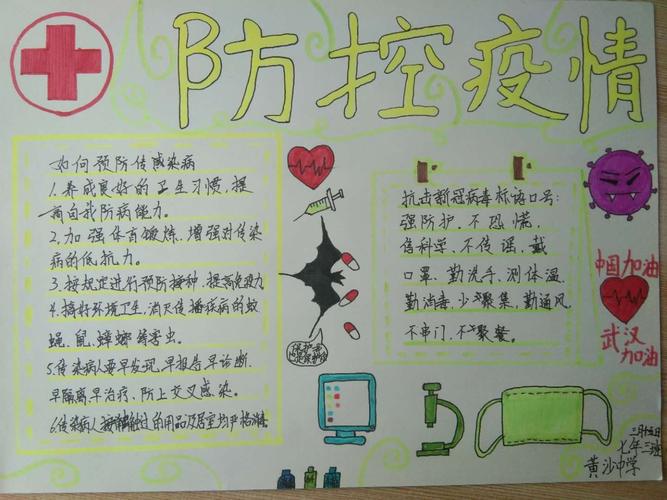 防控疫情
如何预防传感染病
1.养成良好的卫生习惯,提
高向我防病能力。
2.加强体育锻炼,增强对传染
病的低抗力。
3.按规定进行预防接种,提高免疫力
4.搞好环境卫生,消灭传播疾病的蚊
蝇、鼠、蟑螂等害虫。
5.传染病人要早发现,早报告早诊断,
早隔离早治疗、防上交叉感染。
6.传染病人接触过的用品及居室均严格消毒
抗击新冠病毒标语口号:
强防护,不恐慌,
信科学,不传谣,戴
口罩、勤洗手,测体温,
勤消毒,少聚集,勤通风
不串门,不聚餐。
中国加油
武汉
加油
二月十五日
七年三班
黄沙中学